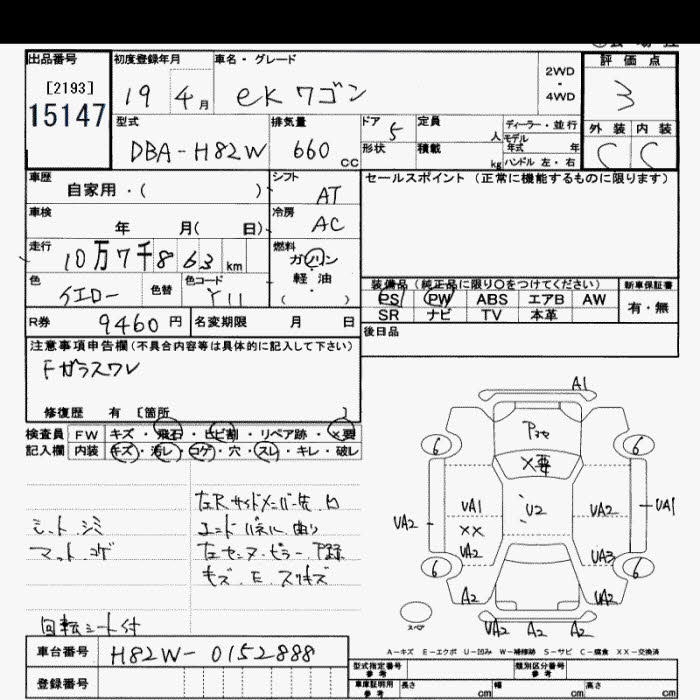 出品番号 初度登録年月 車名・グレード 2WD・4WD 評価点
[2193]
15147 19 4月 ek ワゴン 3
型式 排気量 ドア 定員 人 ディーラー・並行 外装 内装
DBA-H82W 660 cc 5 モデル年式 年 C C
形状 積載 kg ハンドル 左・右
車歴 シフト セールスポイント (正常に機能するものに限ります)
自家用・( ) AT
車検 冷房
年 月( 日) AC
走行 燃料
10万7千863 km ガソリン
色 色替 色コード 軽油
イエロー Y11 ( )
装備品 (純正品に限り○をつけてください) 新車保証書
PS PW ABS エアB AW 有・無
SR ナビ TV 本革
R券 9460円 名変期限 月 日
後日品
注意事項申告欄(不具合内容等は具体的に記入して下さい)
Fガラスワレ
修復歴 有 [箇所 ]
検査員 FW キズ・飛石・ヒビ割・リペア跡・×要
記入欄 内装 キズ・汚レ・コゲ・穴・スレ・キレ・破レ
シート シミ
マット コゲ
回転シート付
左Rサイドメンバー先
エンドパネル 曲り
左センターピラー
キズ・E・スリキズ
A1
×要
6 6
UA1 U2 UA2 UA1
UA2 XX
UA2 UA3
6 6
A2 UA2
スペア
UA2 A2 A2
A-キズ E-エクボ U-凹み W-補修跡 S-サビ C-腐食 XX-交換済
車台番号 H82W-0152888
登録番号
型式指定番号 参考 類別区分番号 参考
車庫証明用 参考 長さ cm 幅 cm 高さ cm